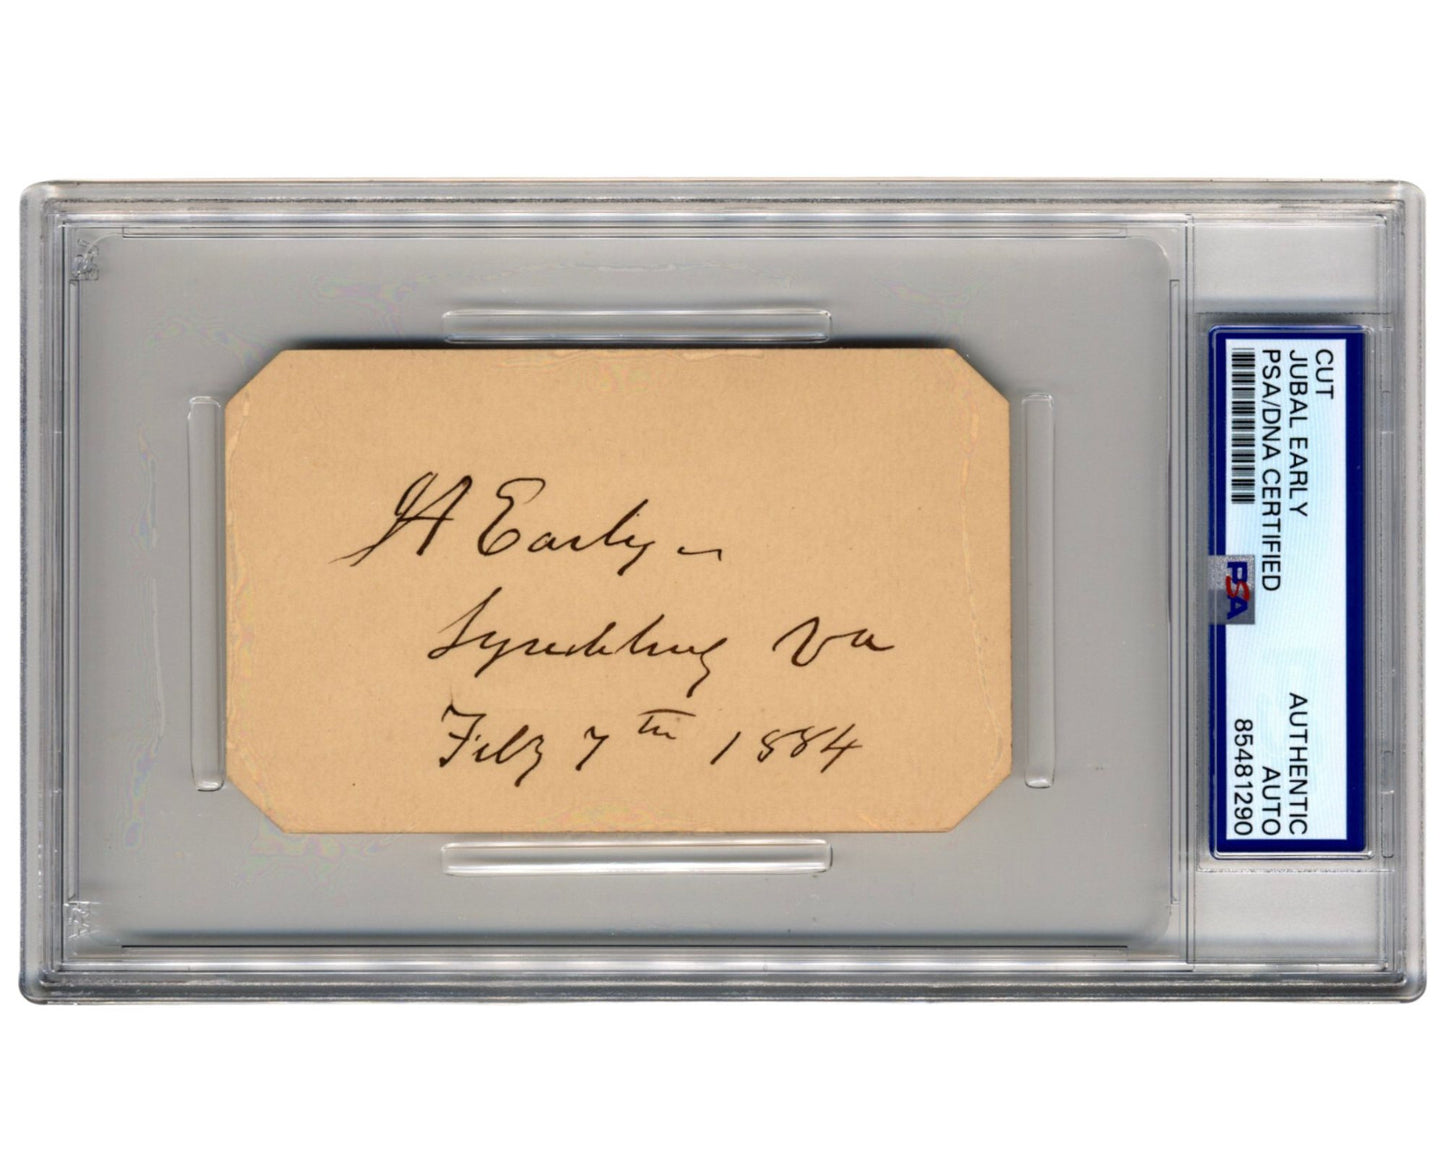 JA Early
Lynchburg Va
Feby 7th 1884
CUT
JUBAL EARLY
PSA/DNA CERTIFIED
AUTHENTIC
AUTO
85481290
PSA